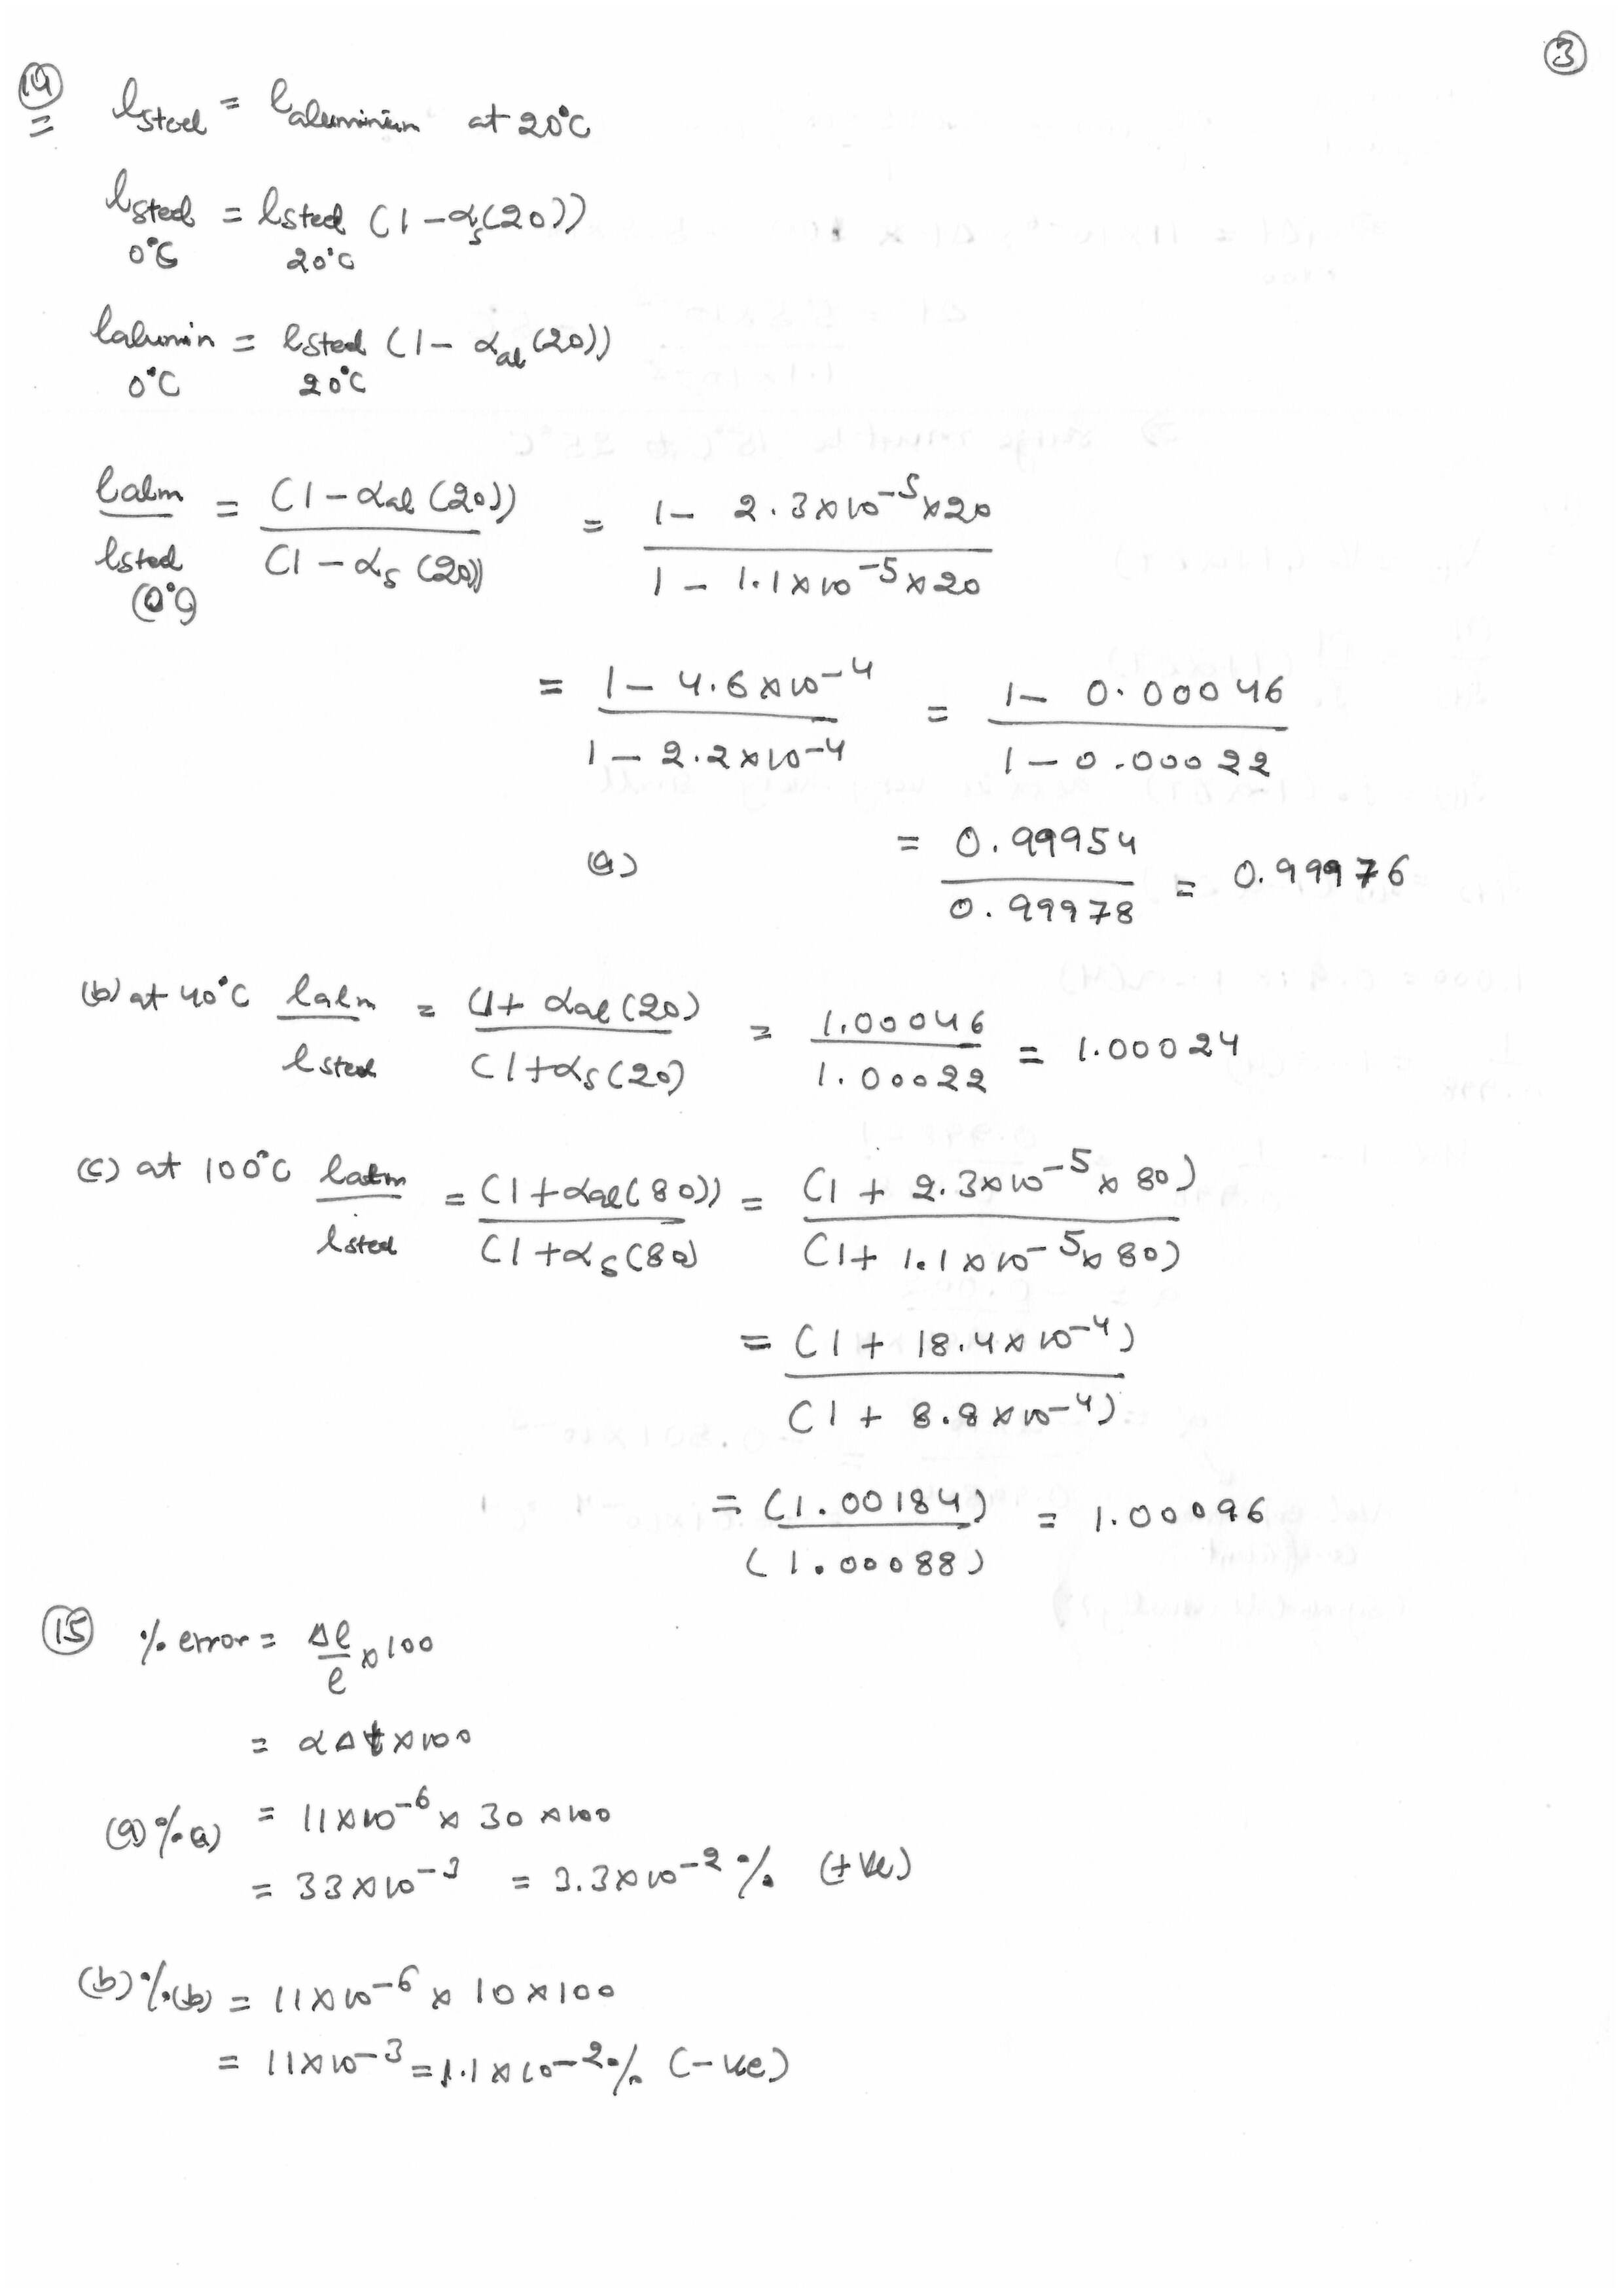 3
14 lsteel = laluminium at 20°C
lsteel 0°C = lsteel 20°C (1 - αs(20))
lalumin 0°C = lsteel 20°C (1 - αal (20))
lalm / lsteel (0°C) = (1 - αal (20)) / (1 - αs (20)) = 1 - 2.3×10⁻⁵×20 / 1 - 1.1×10⁻⁵×20
= 1 - 4.6×10⁻⁴ / 1 - 2.2×10⁻⁴ = 1 - 0.00046 / 1 - 0.00022
(a) = 0.99954 / 0.99978 = 0.99976
(b) at 40°C lalm / lsteel = (1 + αal (20) / (1 + αs (20) = 1.00046 / 1.00022 = 1.00024
(c) at 100°C lalm / lsteel = (1 + αal (80)) / (1 + αs (80) = (1 + 2.3×10⁻⁵ × 80) / (1 + 1.1×10⁻⁵ × 80)
= (1 + 18.4×10⁻⁴) / (1 + 8.8×10⁻⁴)
= (1.00184) / (1.00088) = 1.00096
15 % error = Δl / l × 100
= αΔt×100
(a) %a) = 11×10⁻⁶ × 30 ×100
= 33×10⁻³ = 3.3×10⁻² % (+ve)
(b) %(b) = 11×10⁻⁶ × 10×100
= 11×10⁻³ = 1.1×10⁻² % (-ve)